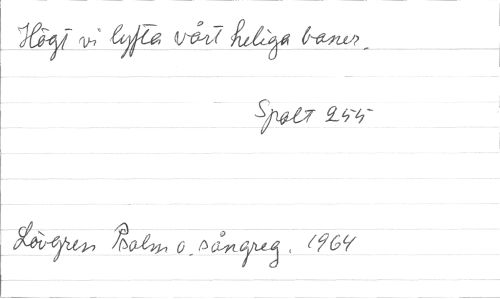 Högt vi lyfta vårt heliga baner.
Spalt 255
Lövgren Psalm o. sångreg. 1964